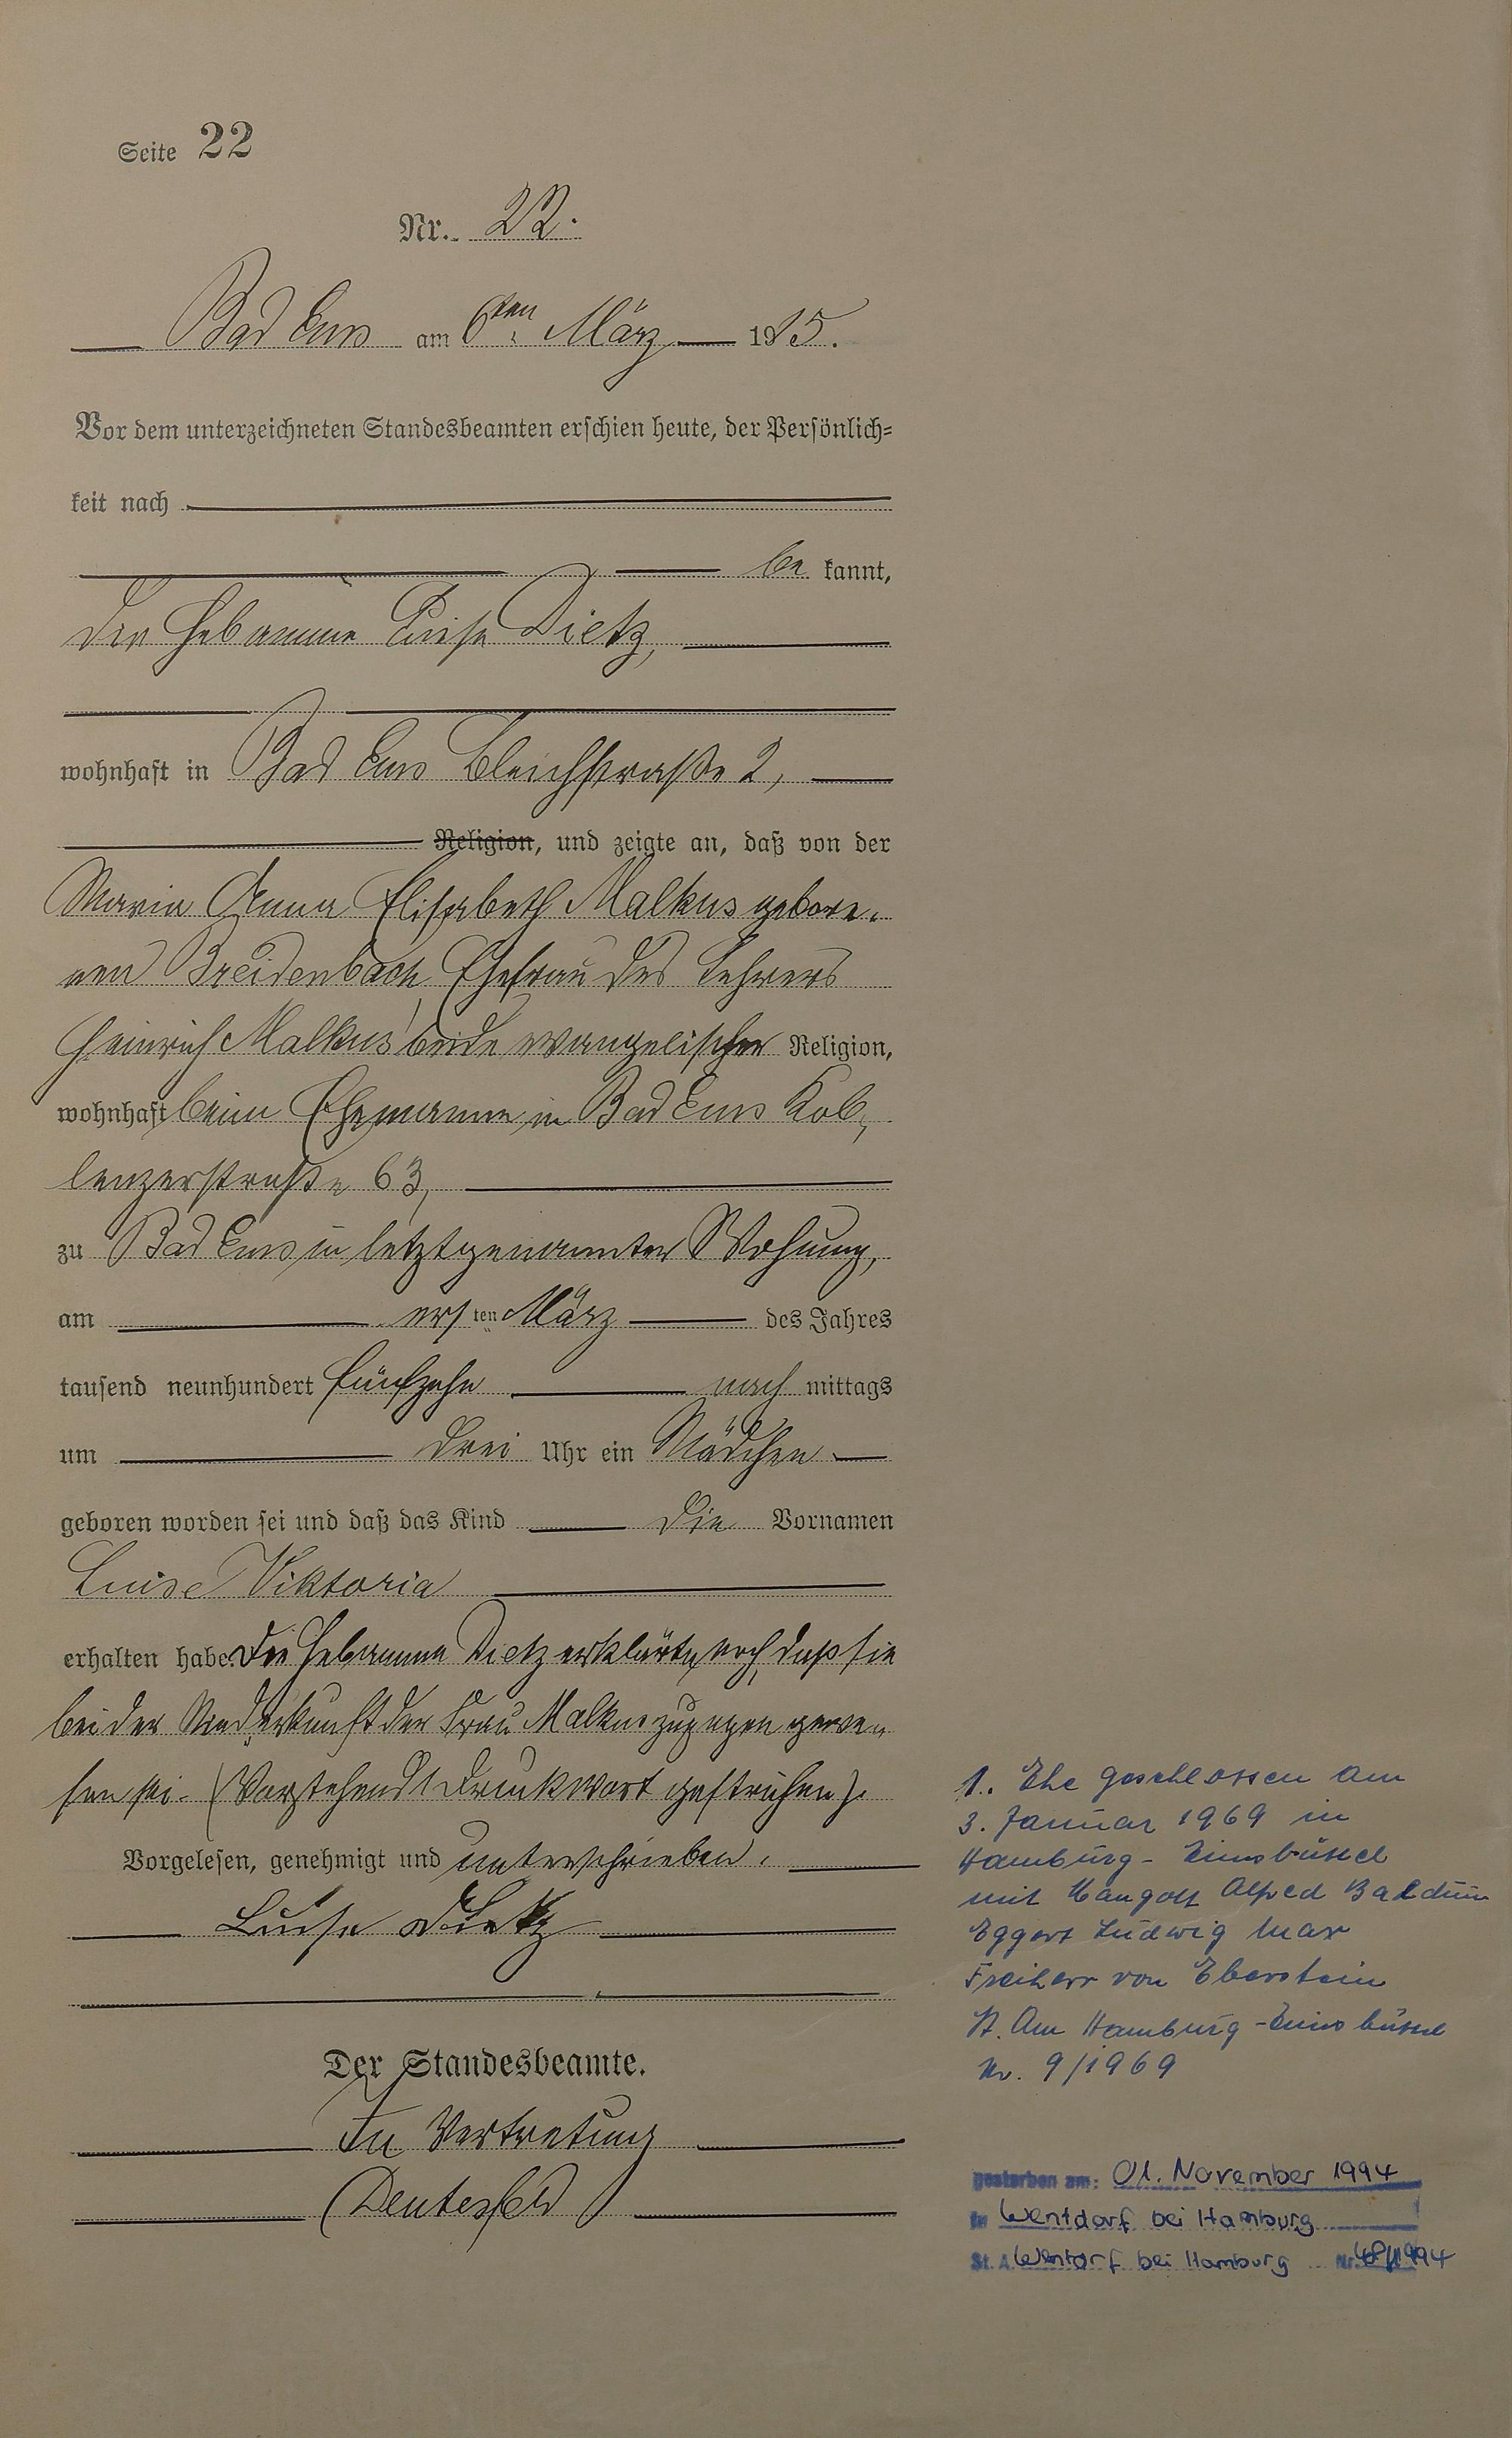 Seite 22
Nr. 22.
Bad Ems am 6ten März 1915.
Vor dem unterzeichneten Standesbeamten erschien heute, der Persönlich=
keit nach
be kannt,
die Hebamme Luise Dietz,
wohnhaft in Bad Ems Bleichstraße 2,
Religion, und zeigte an, daß von der
Maria Anna Elisabeth Malkus gebore„
nen Breidenbach, Ehefrau des Lehrers
Heinrich Malkus beide evangelischer Religion,
wohnhaft beim Ehemanne in Bad Ems Kob„
lenzerstraße 63,
zu Bad Ems in letztgenannter Wohnung,
am ersten März des Jahres
tausend neunhundert fünfzehn nach mittags
um drei Uhr ein Mädchen
geboren worden sei und daß das Kind die Vornamen
Luise Viktoria
erhalten habe. Die Hebamme Dietz erklärte noch, daß sie
bei der Niederkunft der Frau Malkus zugegen gewe„
sen sei. (Vorstehend 1 Druckwort gestrichen).
Vorgelesen, genehmigt und unterschrieben.
Luise Dietz
Der Standesbeamte.
In Vertretung
1. Ehe geschlossen am
3. Januar 1969 in
Hamburg-Eimsbüttel
mit Mangolt Alfred Balduin
Eggert Ludwig Max
Freiherr von Eberstein
St. Am Hamburg-Eimsbüttel
Nr. 9/1969
gestorben am: 01. November 1994
in Wentdorf bei Hamburg
St. A. Wentorf bei Hamburg Nr.